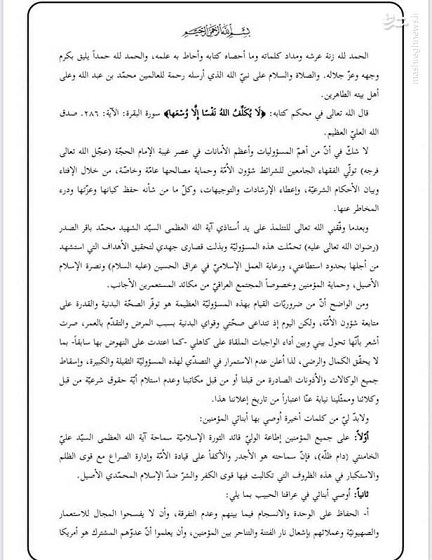 بسم الله الرحمن الرحيم
الحمد لله زنة عرشه ومداد كلماته وما أحصاه كتابه وأحاط به علمه، والحمد لله حمداً يليق بكرم
وجهه وعزّ جلاله. والصلاة والسلام على نبيّ الله الذي أرسله رحمة للعالمين محمّد بن عبد الله وعلى
أهل بيته الطاهرين.
قال الله تعالى في محكم كتابه: ﴿لَا يُكَلِّفُ اللهُ نَفْسًا إِلَّا وُسْعَهَا﴾ سورة البقرة: الآية: ٢٨٦. صدق
الله العليّ العظيم.
لا شكّ في أنّ من أهمّ المسؤوليات وأعظم الأمانات في عصر غيبة الإمام الحجّة (عجّل الله تعالى
فرجه) تولّي الفقهاء الجامعين للشرائط شؤون الأمّة وحماية مصالحها عامّة وخاصّة، من خلال الإفتاء
وبيان الأحكام الشرعيّة، وإعطاء الإرشادات والتوجيهات، وكلّ ما من شأنه حفظ كيانها وعزّتها ودرء
المخاطر عنها.
وبعدما وفّقني الله تعالى للتتلمذ على يد أستاذي آية الله العظمى السيّد الشهيد محمّد باقر الصدر
(رضوان الله تعالى عليه) تحمّلت هذه المسؤوليّة وبذلت قصارى جهدي لتحقيق الأهداف التي استشهد
من أجلها بحدود استطاعتي، ورعاية العمل الإسلاميّ في عراق الحسين (عليه السلام) ونصرة الإسلام
الأصيل، وحماية المؤمنين وخصوصاً المجتمع العراقيّ من مكائد المستعمرين الأجانب.
ومن الواضح أنّ من ضروريّات القيام بهذه المسؤوليّة العظيمة هو توفّر الصحّة البدنية والقدرة على
متابعة شؤون الأمّة، ولكن اليوم إذ تتداعى صحّتي وقواي البدنية بسبب المرض والتقدّم بالعمر، صرت
أشعر بأنّها تحول بيني وبين أداء الواجبات الملقاة على كاهلي -كما اعتدت على النهوض بها سابقاً- بما
لا يحقّق الكمال والرضى، لذا أعلن عدم الاستمرار في التصدّي لهذه المسؤوليّة الثقيلة والكبيرة، وإسقاط
جميع الوكالات والأذونات الصادرة من قبلنا أو من قبل مكاتبنا وعدم استلام أيّة حقوق شرعيّة من قبل
وكلائنا وممثّلينا نيابة عنّا اعتباراً من تاريخ إعلاننا هذا.
ولابدّ ليْ من كلمات أخيرة أوصي بها أبنائي المؤمنين:
أوّلاً: على جميع المؤمنين إطاعة الوليّ قائد الثورة الإسلاميّة سماحة آية الله العظمى السيّد عليّ
الخامنئي (دام ظلّه)، فإنّ سماحته هو الأجدر والأكفأ على قيادة الأمّة وإدارة الصراع مع قوى الظلم
والاستكبار في هذه الظروف التي تكالبت فيها قوى الكفر والشرّ ضدّ الإسلام المحمّدي الأصيل.
ثانياً: أوصي أبنائي في عراقنا الحبيب بما يلي:
أ- الحفاظ على الوحدة والانسجام فيما بينهم وعدم التفرقة، وأن لا يفسحوا المجال للاستعمار
والصهيونيّة وعملائهم بإشعال نار الفتنة والتناحر بين المؤمنين، وأن يعلموا أنّ عدوّهم المشترك هو أمريكا
mashreghnews.ir